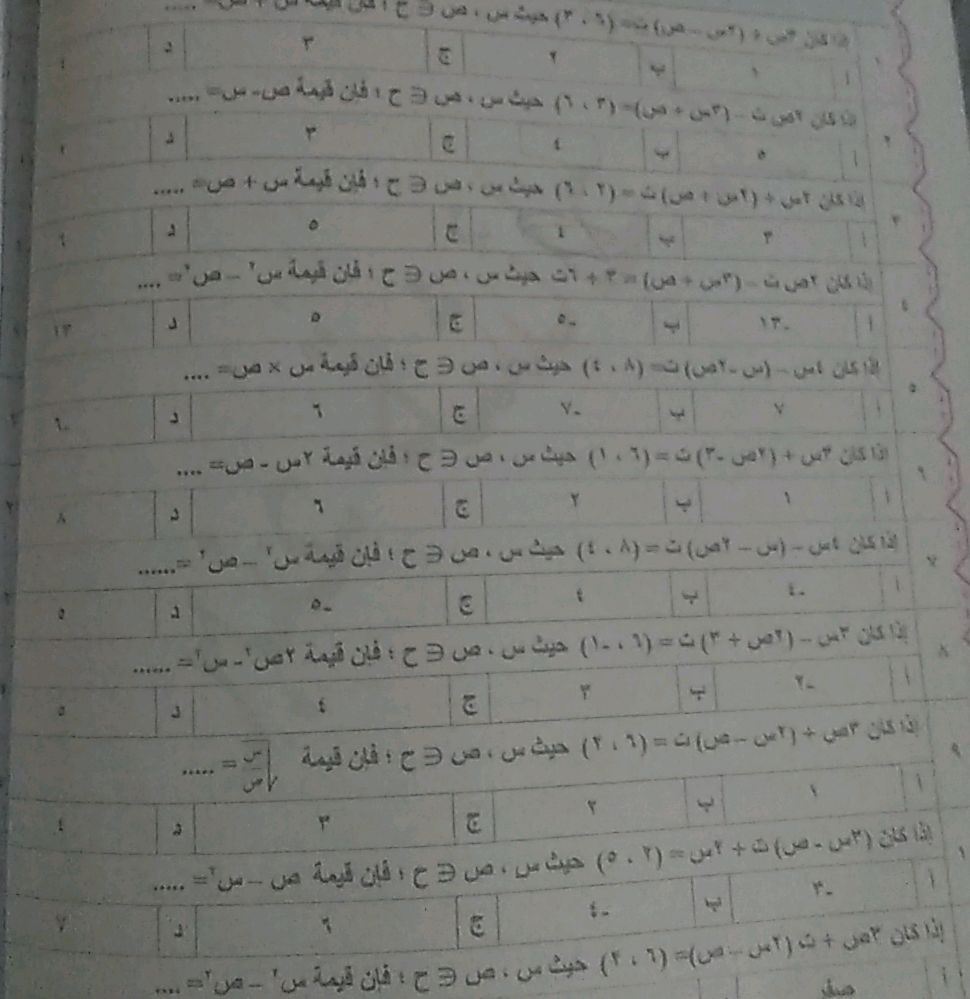 إذا كان ٣ص + (٢س – ص) ت= (٦ ، ٣) حيث س ، ص ∈ ح ؛ فإن قيمة س + ص= .....
١ أ ١ ب ٢ ج ٣ د ٤
٢ إذا كان ٢ص ت – (٣س + ص)= (٣ ، ٦) حيث س ، ص ∈ ح ؛ فإن قيمة ص- س= .....
أ ٥ ب ٤ ج ٣ د ٢
٣ إذا كان ٢س + (٢س + ص) ت = (٢ ، ٦) حيث س ، ص ∈ ح ؛ فإن قيمة س + ص= .....
أ ٣ ب ٤ ج ٥ د ٦
٤ إذا كان ٢ص ت – (٣س + ص) = ٣ + ٦ت حيث س ، ص ∈ ح ؛ فإن قيمة س٢ – ص٢= ....
أ -١٣ ب -٥ ج ٥ د ١٣
٥ إذا كان ٤س – (س -٢ص) ت= (٨ ، ٤) حيث س ، ص ∈ ح ؛ فإن قيمة س × ص= ....
أ ٧ ب -٧ ج ٦ د -٦
٦ إذا كان ٣س + (٢ص -٣) ت = (٦ ، ١) حيث س ، ص ∈ ح ؛ فإن قيمة ٢س - ص= ....
أ ١ ب ٢ ج ٦ د ٨
٧ إذا كان ٤س – (س – ٢ص) ت = (٨ ، ٤) حيث س ، ص ∈ ح ؛ فإن قيمة س٢ – ص٢ =......
أ -٤ ب ٤ ج -٥ د ٥
٨ إذا كان ٣س – (٢ص + ٣) ت = (٦ ، -١) حيث س ، ص ∈ ح ؛ فإن قيمة ٢ص٢ - س٢= ......
أ -٢ ب ٣ ج ٤ د ٥
٩ إذا كان ٣ص + (٢س – ص) ت = (٦ ، ٢) حيث س ، ص ∈ ح ؛ فإن قيمة √(س/ص) = .....
أ ١ ب ٢ ج ٣ د ٤
إذا كان (٣س - ص) ت + ٢س = (٢ ، ٥) حيث س ، ص ∈ ح ؛ فإن قيمة ص – س٢= .....
أ -٣ ب -٤ ج ٦ د ٧
إذا كان ٣ص + ت (٢س – ص)= (٦ ، ٢) حيث س ، ص ∈ ح ؛ فإن قيمة س٢ – ص٢= ....
أ صفر